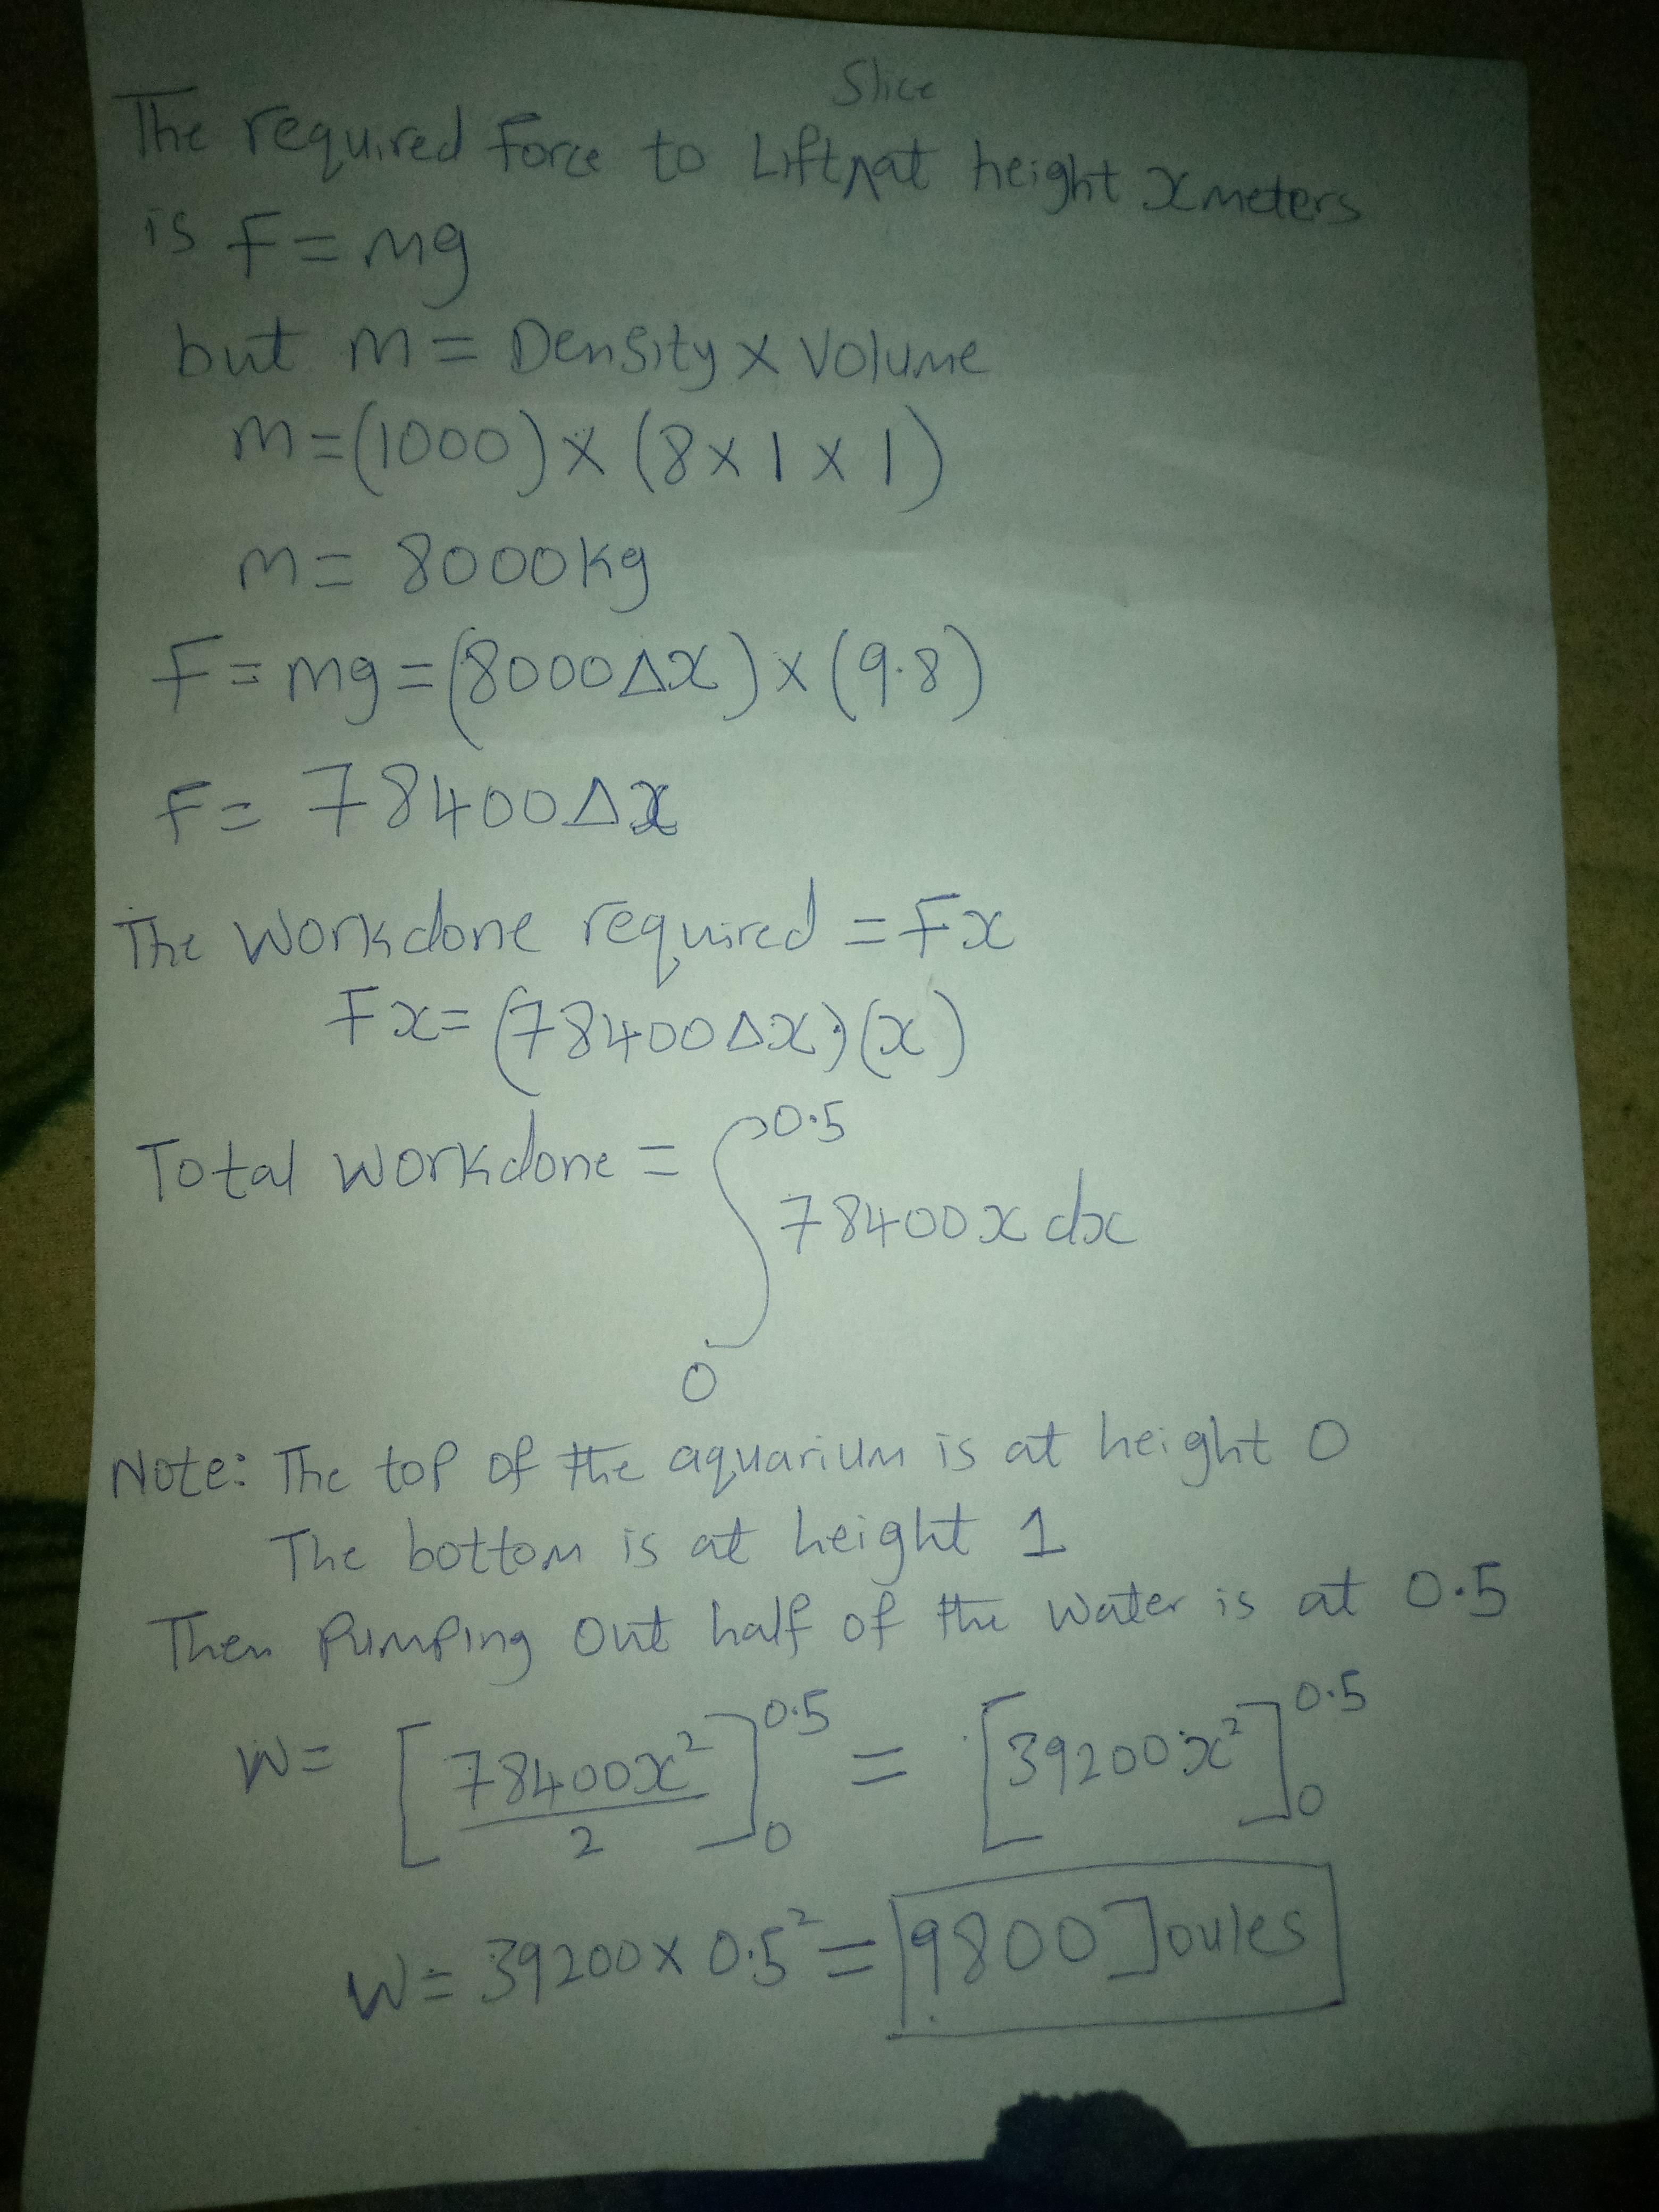 Slice
The required force to Lift^at height x meters
is F = mg
but m = Density x Volume
m = (1000) x (8 x 1 x 1)
m = 8000kg
F = mg = (8000Δx) x (9.8)
F = 78400Δx
The workdone required = Fx
Fx = (78400Δx)(x)
Total workdone = ∫₀^0.5 78400x dx
Note: The top of the aquarium is at height 0
The bottom is at height 1
Then Pumping out half of the water is at 0.5
W = [78400x²/2]₀^0.5 = [39200x²]₀^0.5
W = 39200 x 0.5² = 9800 Joules